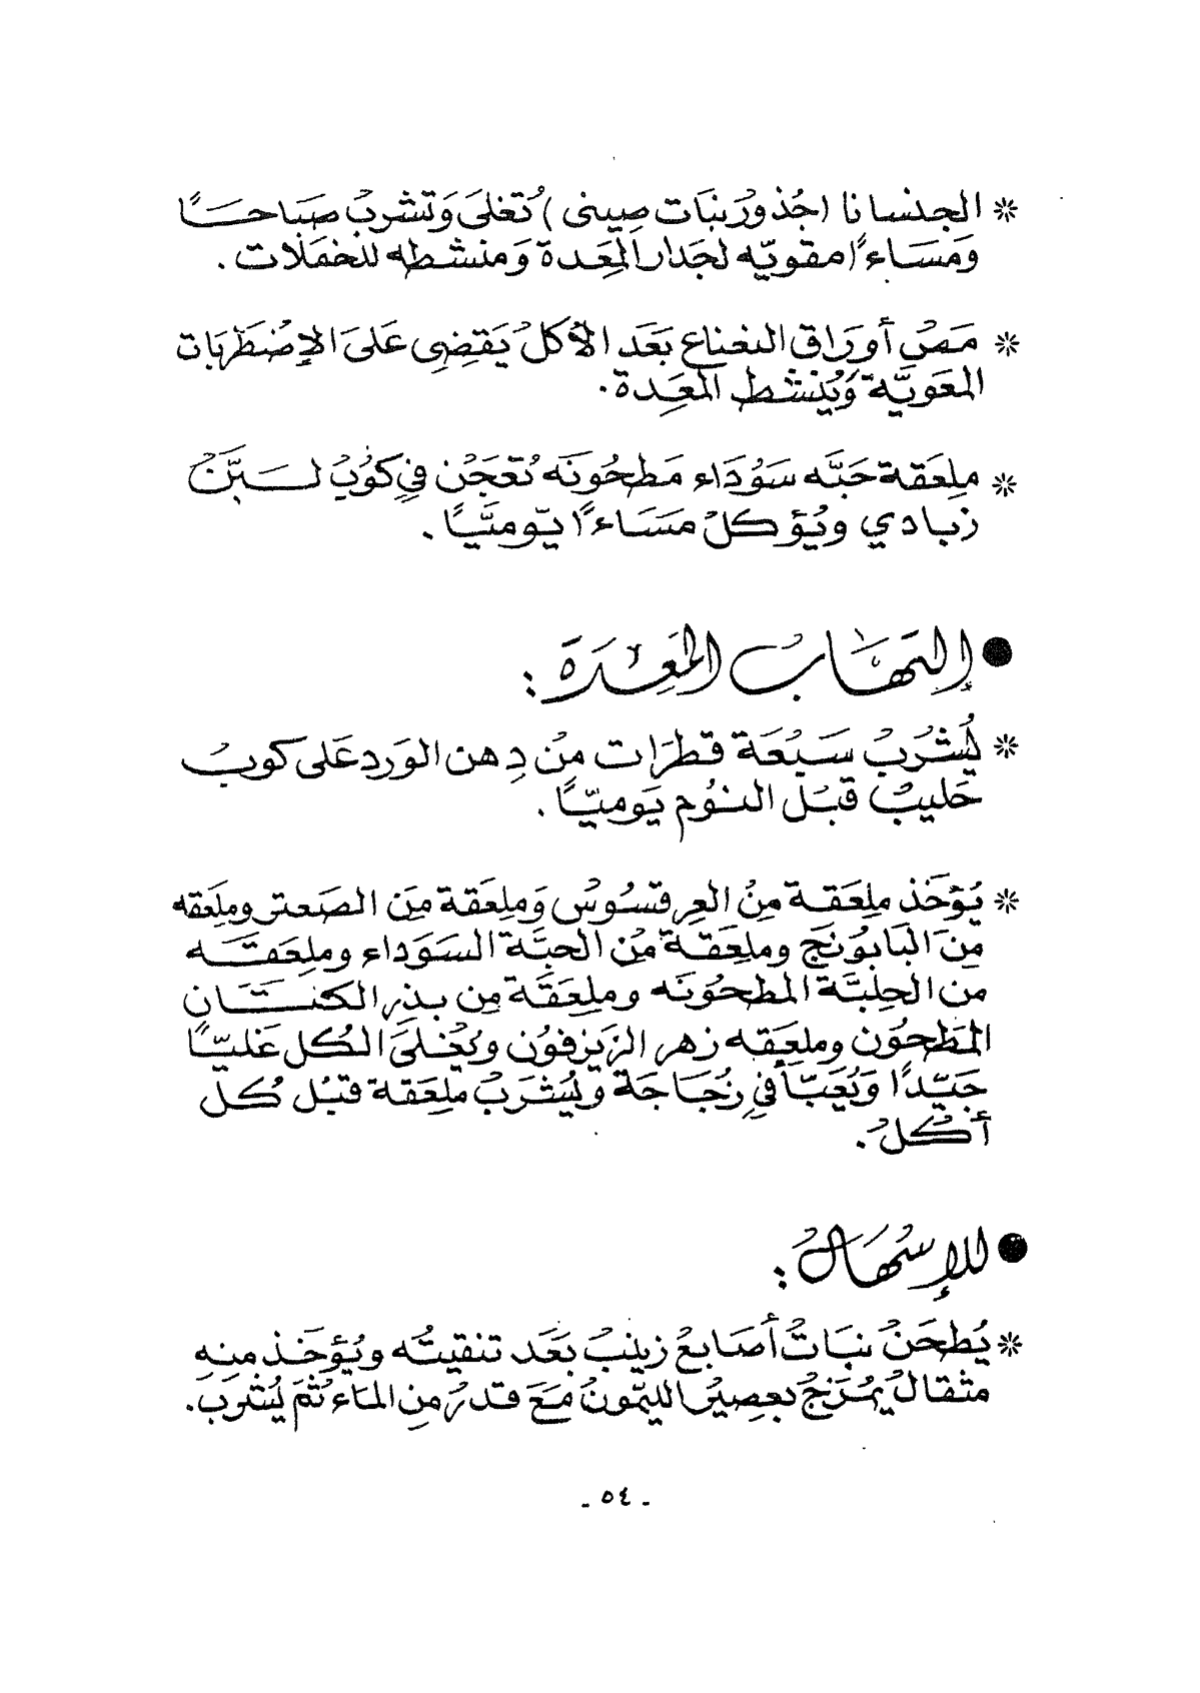 * الجنسانا (جُذورُ نبَات صِينى) تُغلىَ وَتشربُ صَباحسًا
وَمَسَاءً مقويّه لجَدارالمِعَدة وَمنشطه للخمَلات .
* مَصُ أورَاق النعناع بَعَد الأكلُ يَقضِى عَلىَ الإضطَرَبَات
المعَويَّة وَيُنشط المعَدة .
* ملِعَقة حَبَّه سَوُدَاء مَطحُونَه تُعجَن فيِ كوُبُ لـبَّنُ
زبادي ويُؤكلُ مسَاءً يّوميًّا .
● إلتِهَابُ المَعِدَة :
* يُشرَبُ سَبُعَة قطرَات مِنُ دِهن الوَرد عَلى كوبُ
حَليبُ قبَل النوُم يَوميّاً .
* يُؤخَذ ملِعَقة مِنُ العِرقسُوسُ وَملِعَقة مِنَ الصَعتر وملِعَقه
مِنَ البَابوُنَج وملعِقَة مُن الحبَّة السَوَداء وملعَقَه
من الحِلبَّة المطحوُنَه وملِعَقَّة مِن بذر الكتَان
المَطحوُن وملعَقه زهر الزَيزفوُن ويُغلىَ الكُل غَليّاً
جَيّدًا وَيُعَبّأ فيِ زُجَاجَة ويُشرَبُ ملعَقة قبُل كُل
أكُلُ .
● للإسُهَالُ :
* يُطحَنُ نبَاتُ أصَابعُ زينبُ بَعَد تنقيتُه ويُؤخَذ منهِ
مثقالُ يمُزَجُ بعصِيرُ الليمُونُ مَعَ قدرُ مِن الماَء ثُمَ يُشرَبَ .
- ٥٤ -